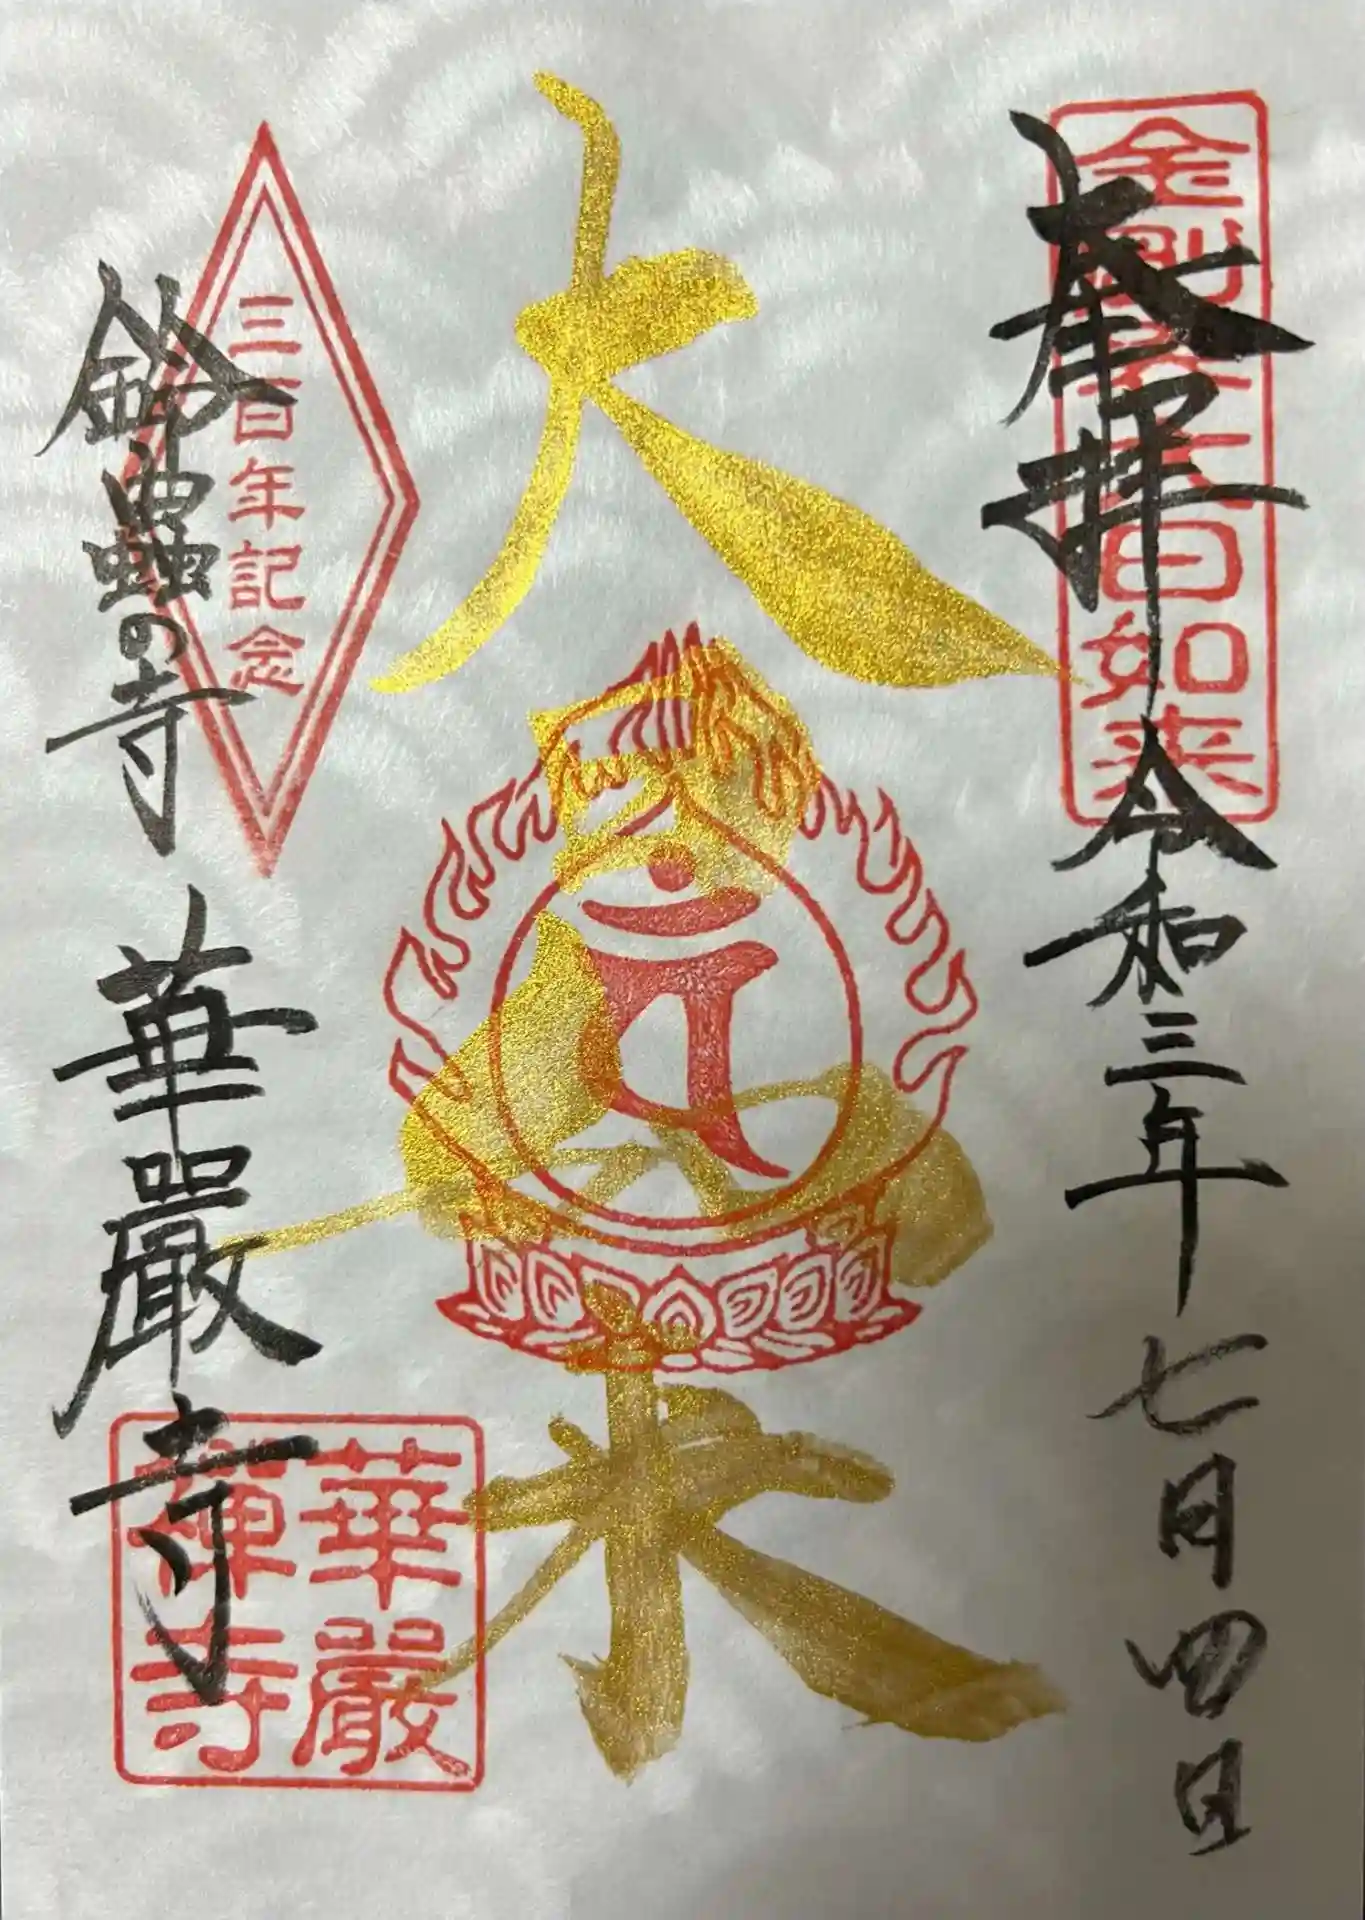 奉拝 令和三年七月四日
金剛界大日如来
大日如来
三百年記念
鈴蟲の寺 華嚴寺
華嚴
禪寺